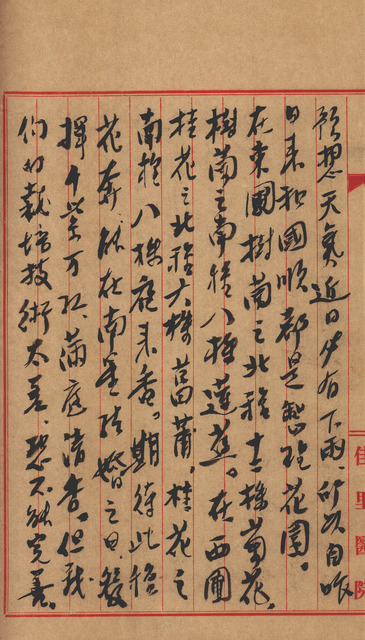 預想天氣近日少有下雨、所以自昨
日来和國順都是整理花園。
在東圃樹蘭之北種十一株菊花、
樹蘭之南種八株蓮蕉。在西圃
桂花之北種六株菖蒲、桂花之
南種八株庭来香。期待此種
花奔、能在南星結婚之日、發
揮千紫万紅、滿庭清香。但我
们的栽培技術太差、恐不能完善。
佳里醫院